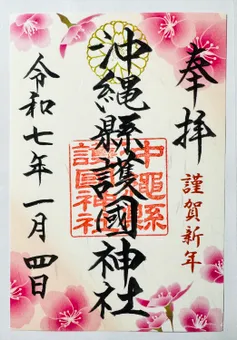 奉拝
謹賀新年
沖縄縣護國神社
沖縄縣
護国神社
令和七年一月四日